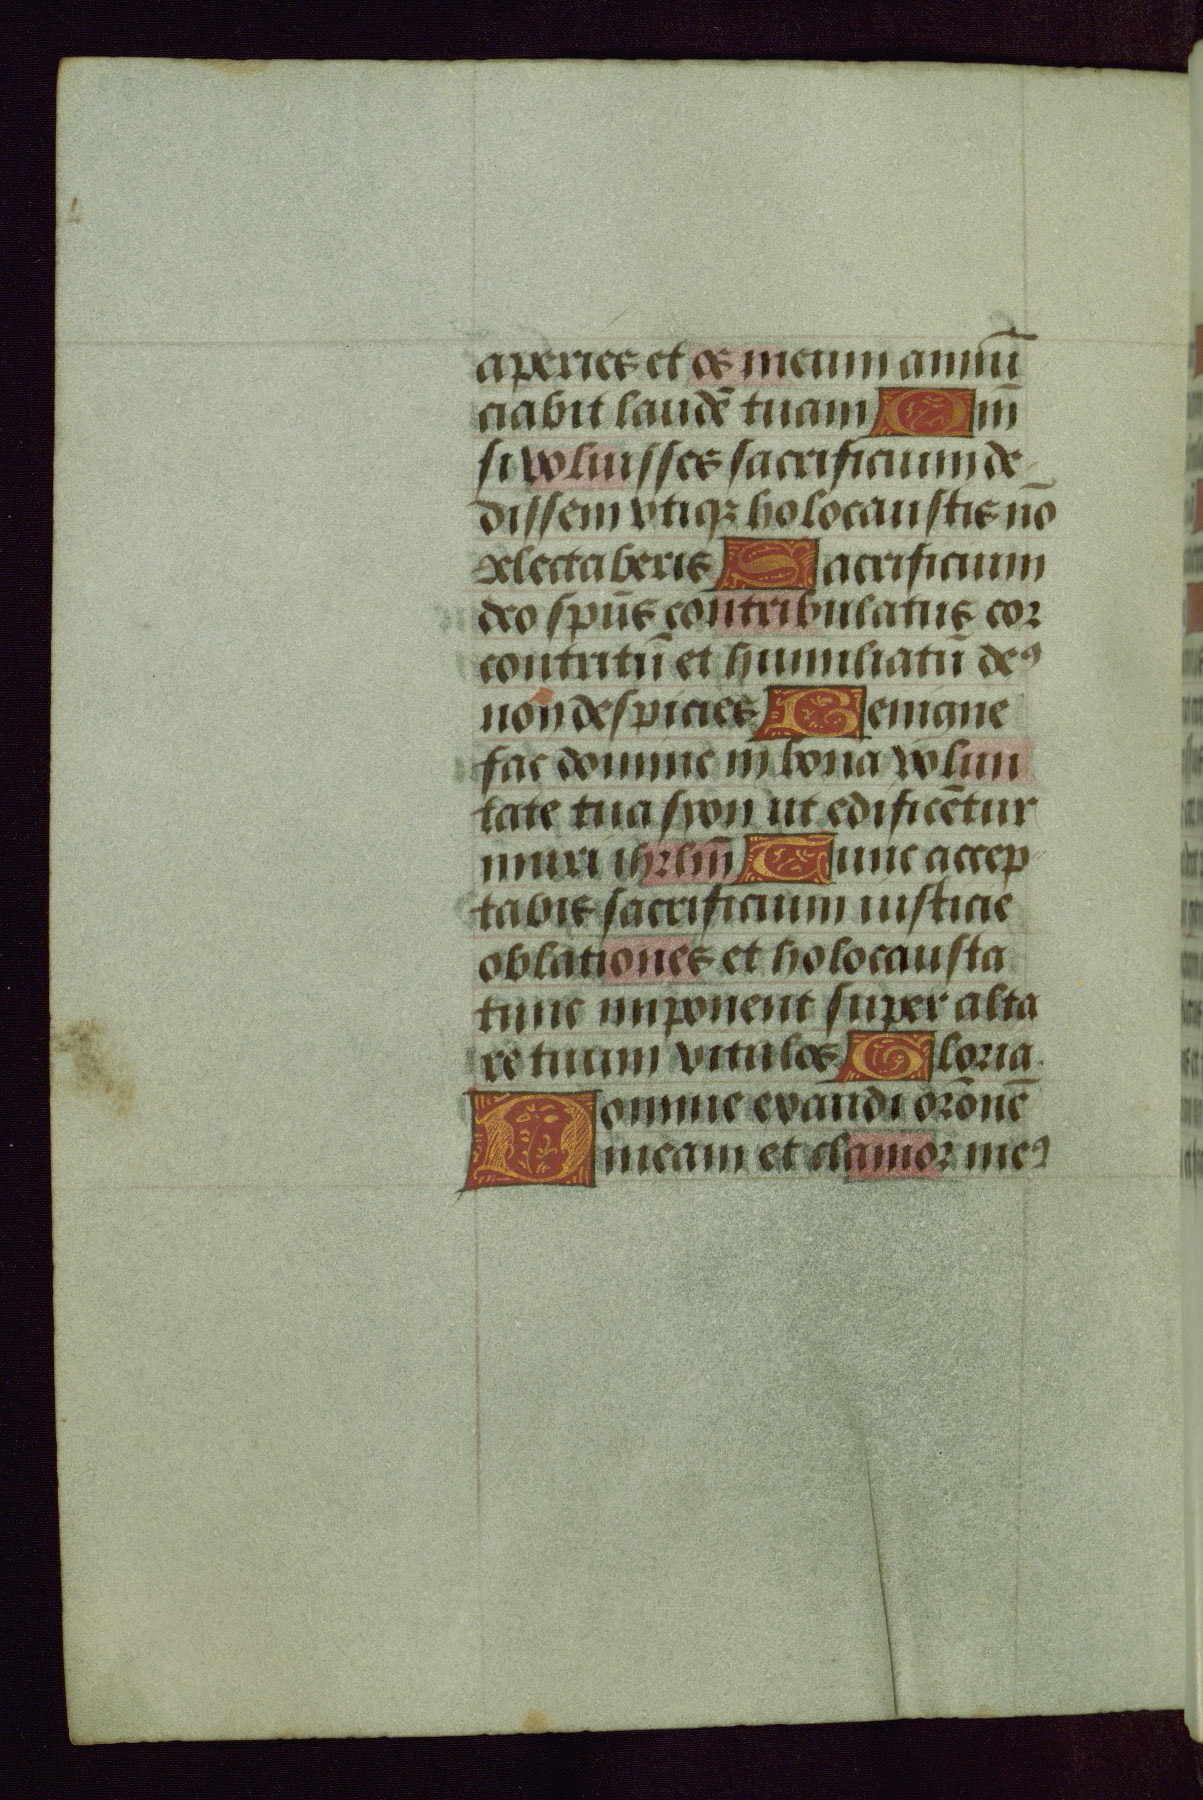 aperies et os meum annūt
ciabit laudē tuam Qm̄
si voluisses sacrificium de
dissem vtiqꝫ holocaustis nō
delectaberis Sacrificium
deo spūs contribulatus cor
contritū et humiliatū deꝰ
non despicies Benigne
fac domine in bona volun
tate tua syon ut edificētur
muri ihrlm̄ Tunc accep
tabis sacrificium iusticie
oblationes et holocausta
tunc imponent super alta
re tuum vitulos Gloria
Domine exaudi orōnē
meam et clamor meꝰ